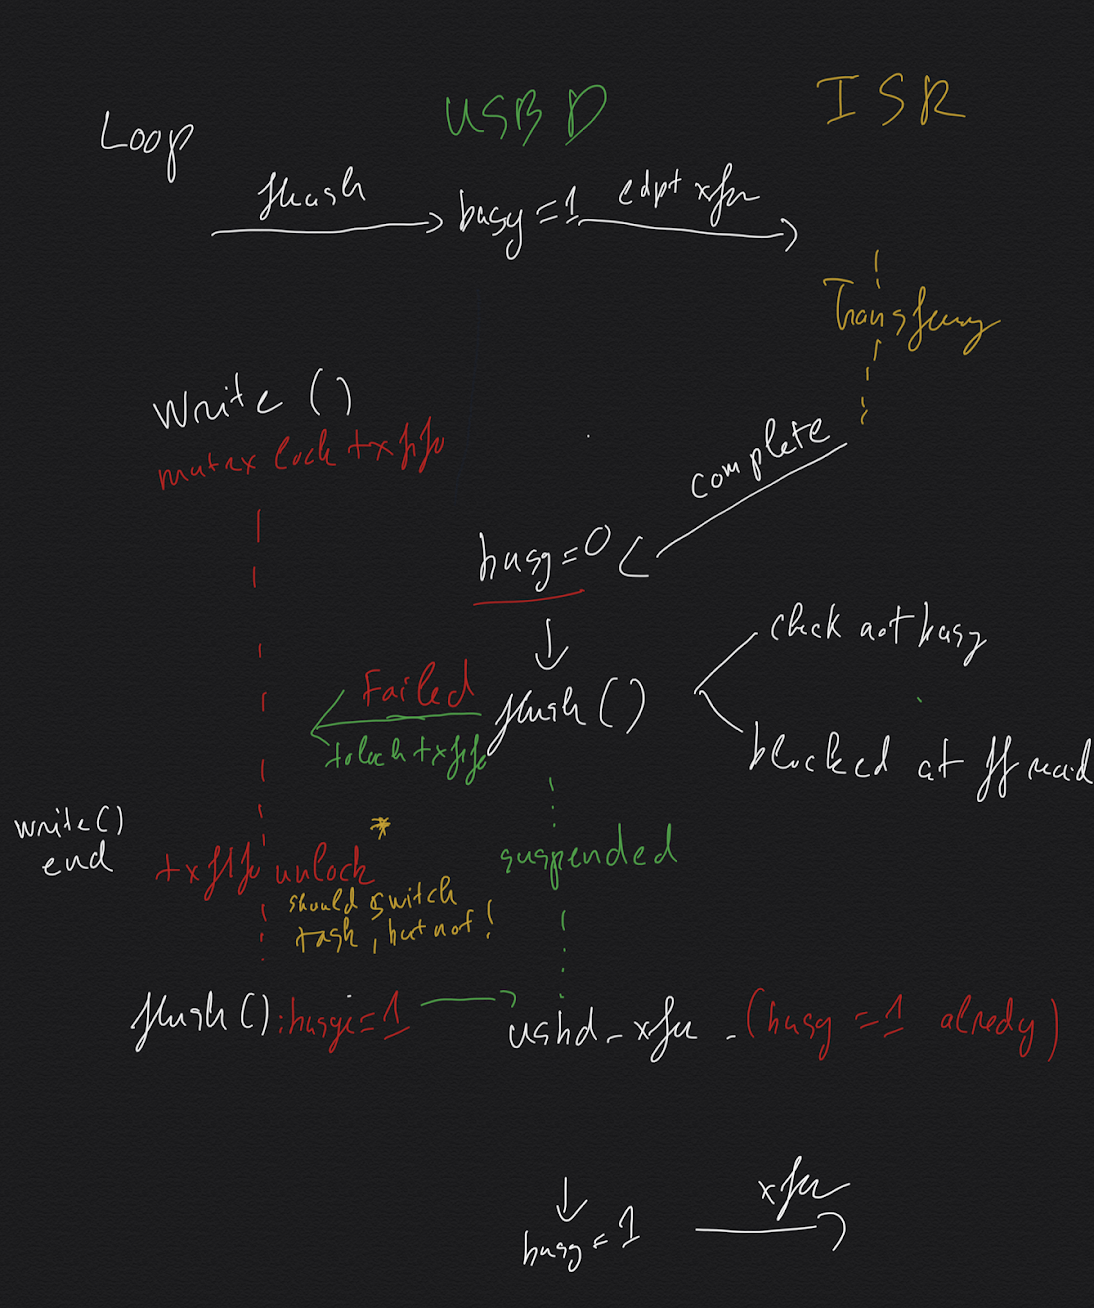 Loop
USBD
ISR
flush
busy = 1
edpt xfer
Transferring
Write ()
mutex lock txfifo
complete
busy = 0
check not busy
Failed
flush ()
to lock txfifo
blocked at ff read
write()
end
txfifo unlock *
suspended
should switch
task, but not!
flush() : busy = 1
usbd_xfer - (busy = 1 alredy)
xfer
busy = 1